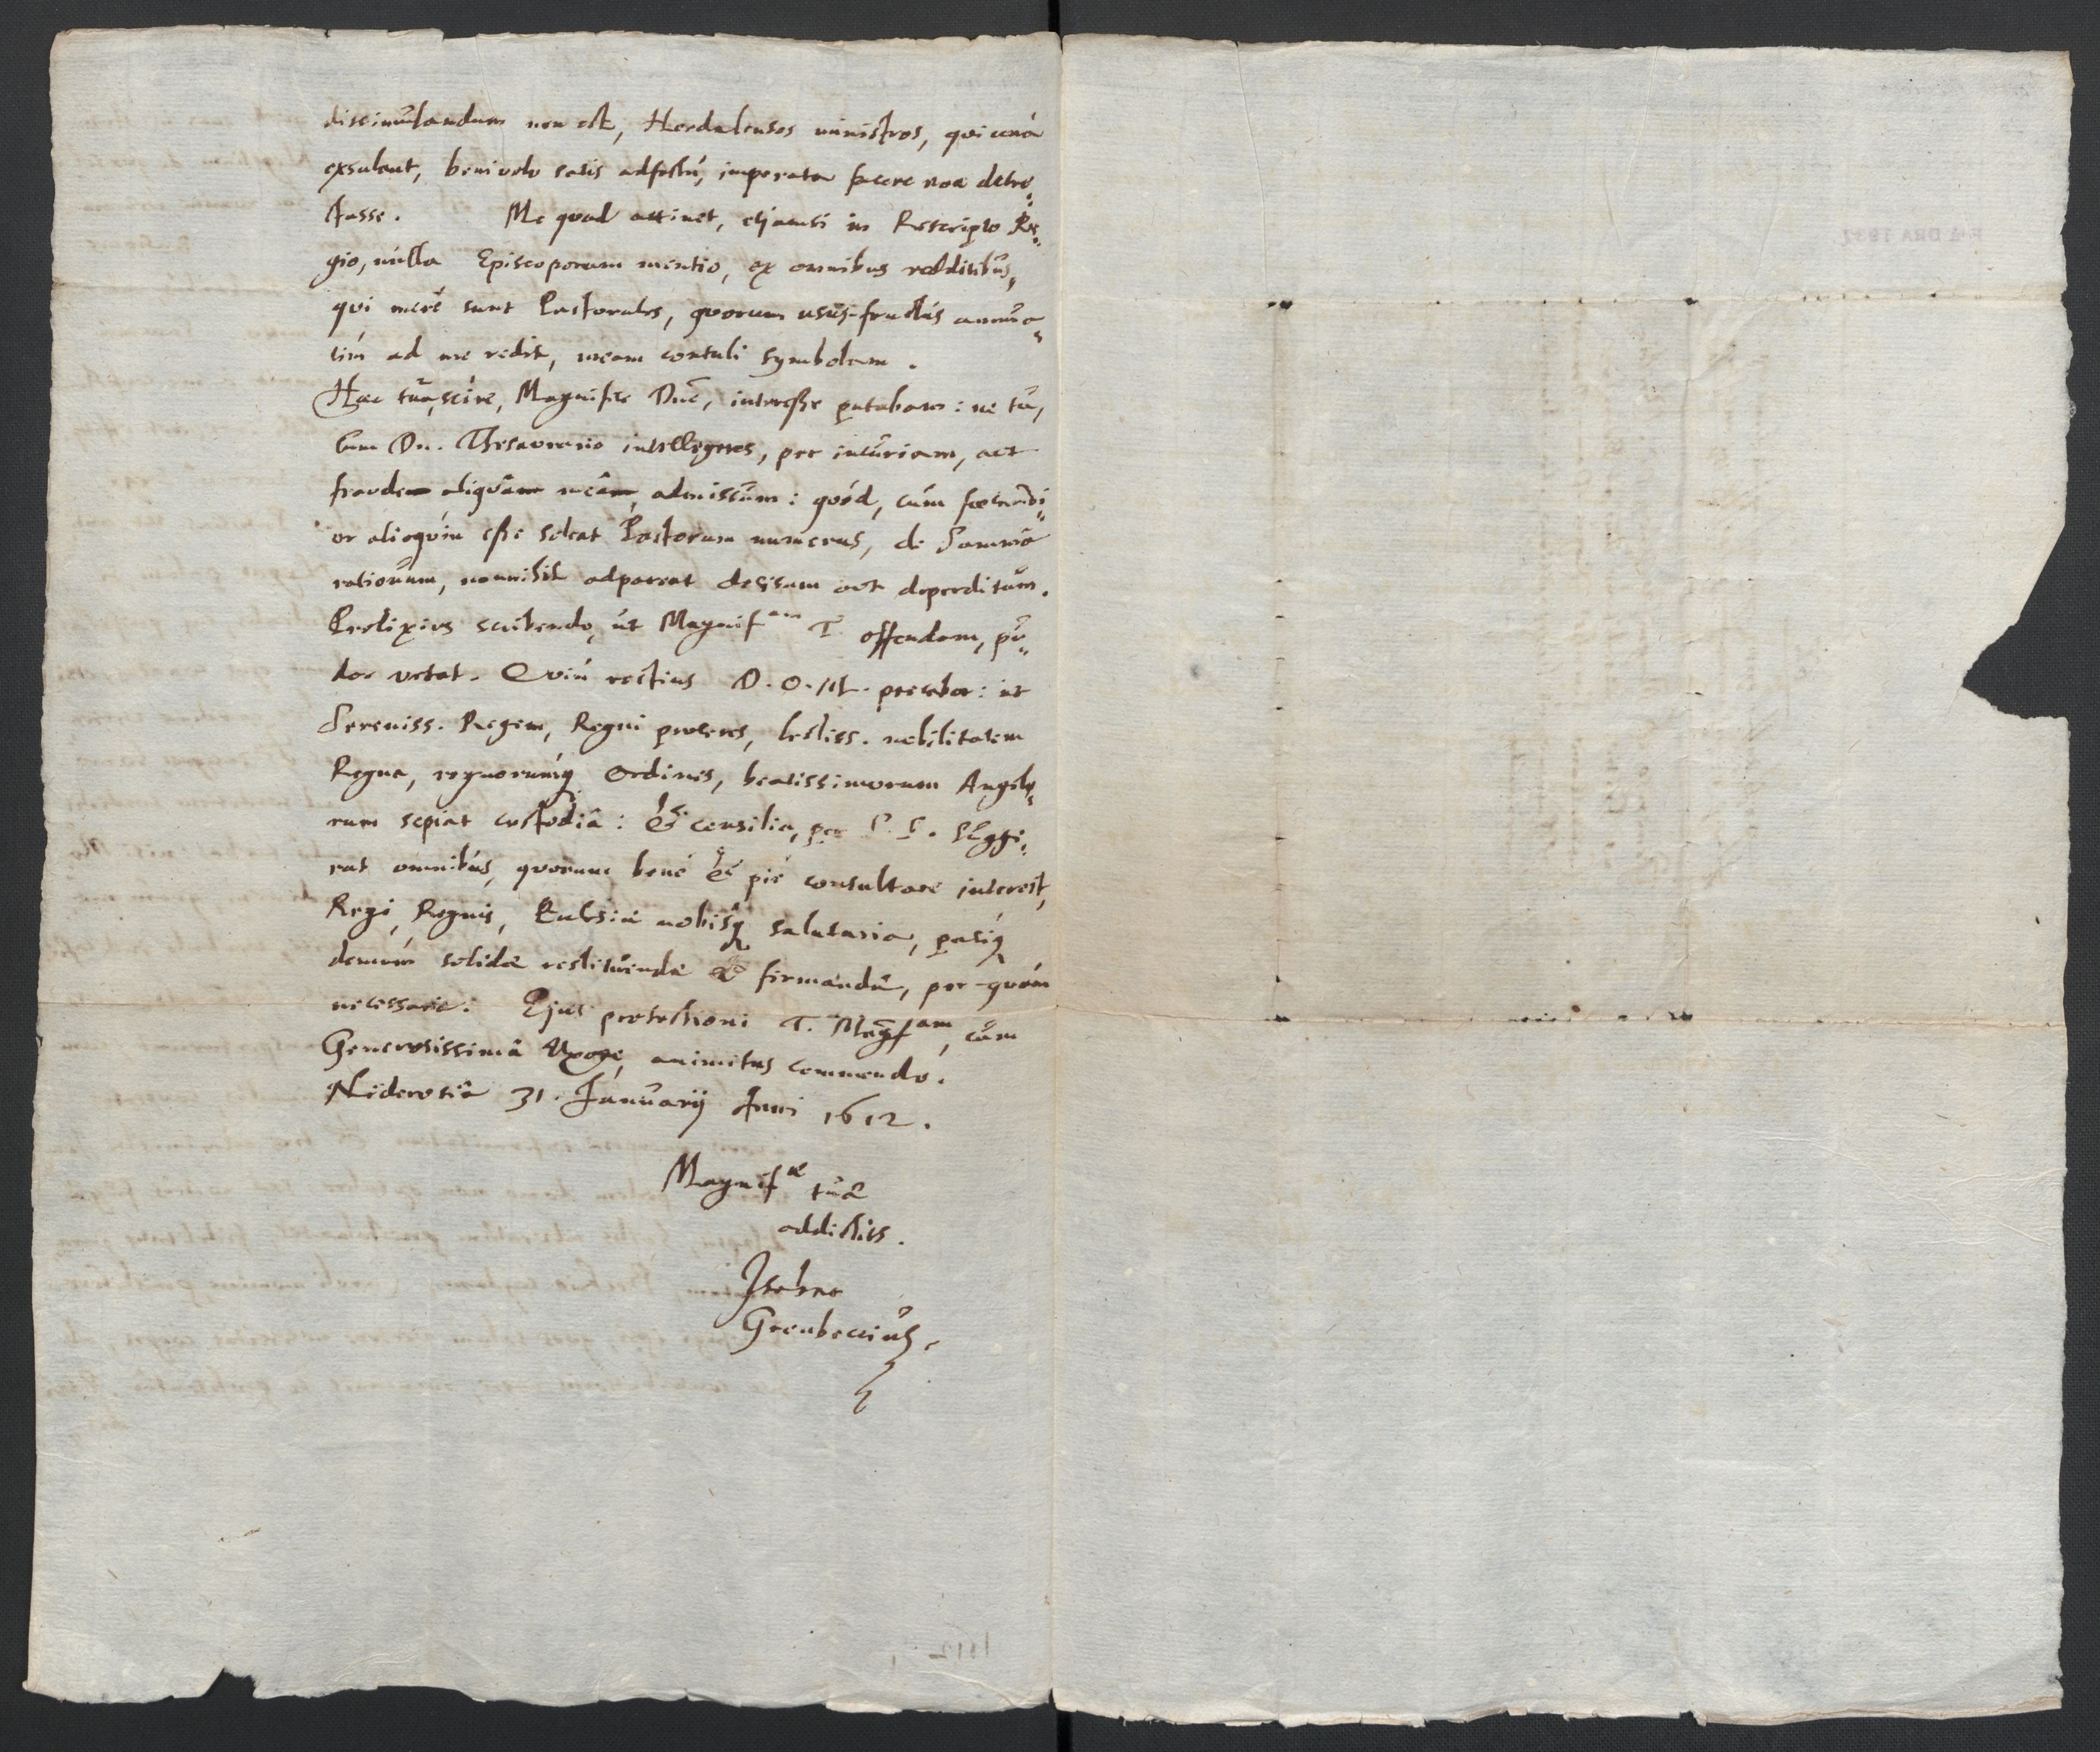 dissimulandum non est, Herdalenses ministros, qui unà
exsulant, benivolo satis adfectu, imperata facere non detre-
ctasse. Me quod attinet, etjamsi in Rescripto Re-
gio, nulla Episcoporum mentio, ex omnibus redditibus,
qui merè sunt Pastorales, quorum usus-fructus annua-
tim ad me redit, meam contuli symbolam.
Hæc tuâ scire, Magnifice Dnē, interesse putabam: ne tu,
cum Dn. Thesaurario intelligeres, per incuriam, aut
fraudem aliquam meam, admissum: quòd, cùm
or alioquin esse soleat Pastorum numerus, de Summâ
rationum, nonnihil adpareat decisum aut deperditum.
Prolixius scribendo, ut Magnif^am T. offendam, pu-
dor vetat. Quin rectius D. O. M. precabor: ut
Sereniss. Regem, Regni proceres, lectiss. nobilitatem
Regna, regnorumq; Ordines, beatissimorum Angelo-
rum sepiat custodiâ: & consilia, per S. S. suggi-
rat omnibus, quorum benè & piè consultare interest,
Regi, Regnis, Eccl͞siæ nobisq; salutaria, paciq;
demùm solidæ restituendæ & firmandæ, per-quàm
necessaria. Ejus protectioni T. Magf^am, cum
Generosissimâ Uxore, animitus commendo.
Niderosiæ 31. Januarij Anni 1612.
Magnif^æ tuæ
addictiss.
Isebrec
Gronbeccius.